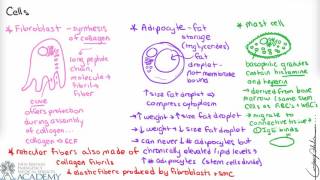 Cells
* Fibroblast - synthesis
of collagen
↓
long peptide
chain,
molecule →
fibrils →
fiber
cove
offers protection
during assembly
of collagen
collagen → ECF
* Adipocyte - fat
storage
(triglycerides)
fat
droplet -
not membrane
bound
↑ size fat droplet →
cytoplasm compress
↑ weight → ↑ size fat droplet
↓ weight → ↓ size fat droplet
→ can never ↓ # adipocytes but
chronically elevated lipid levels ↑
# adipocytes (stem cells divide)
* mast cell
basophilic granules
contain histamine
and heparin
→ derived from bone
marrow (same stem
cells as RBCs & WBCs)
→ migrate to
connective tissue
IgE binds
* reticular fibers also made of
collagen fibrils
* elastic fibers produced by fibroblasts + SMC
ACADEMY